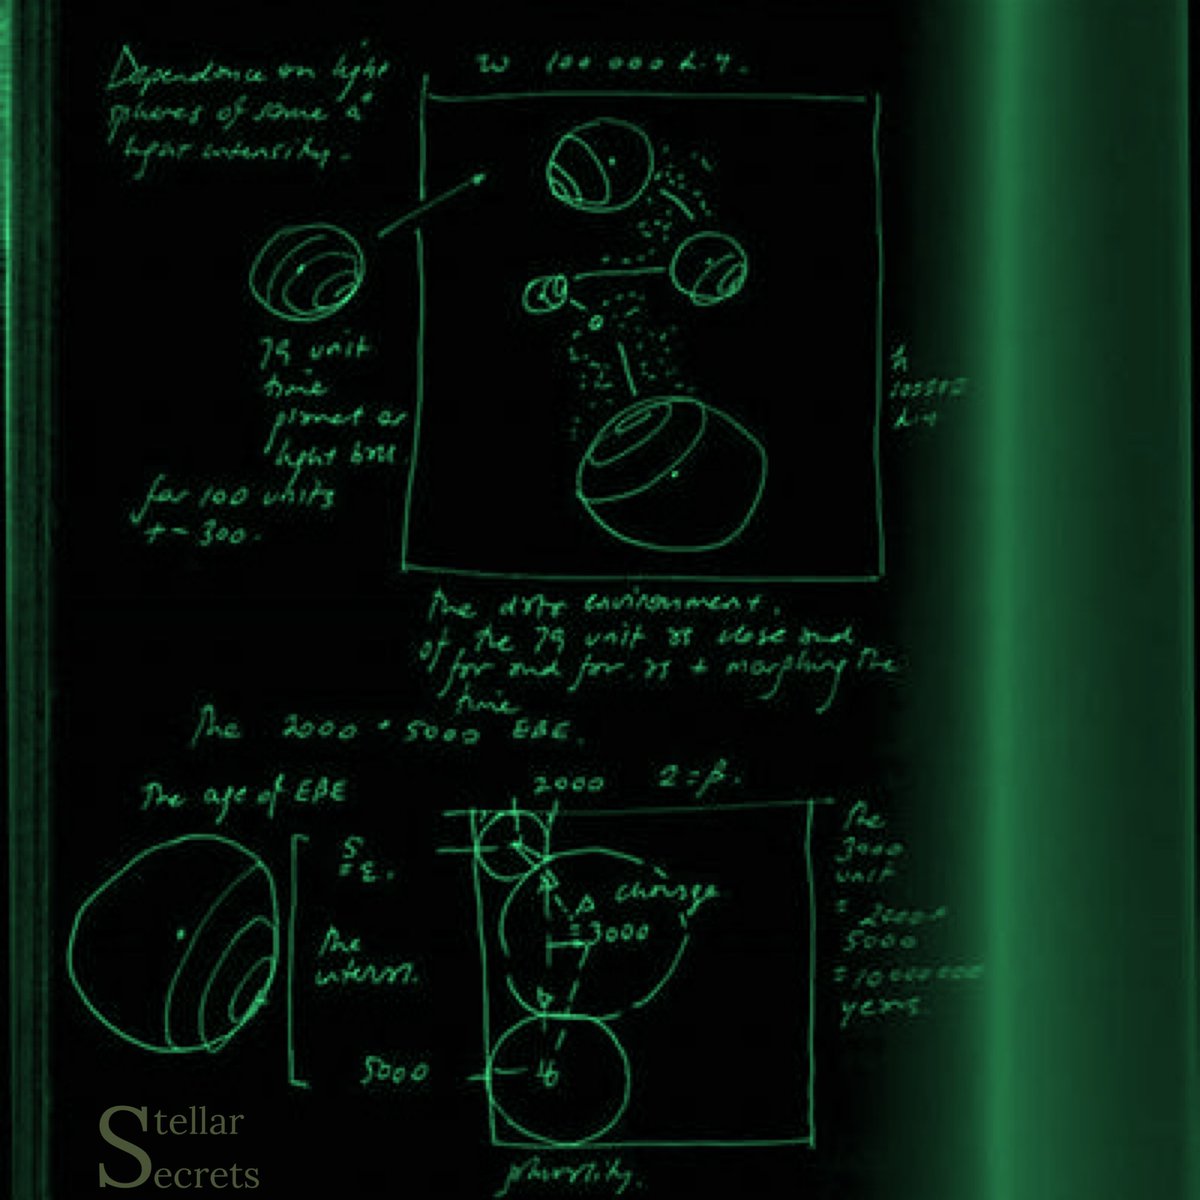 Dependence on light
spheres of some a
light intensity.
w 100 000 L.Y.
79 unit
time
planet or
light
for 100 units
+- 300.
h
L.Y
The environment.
of the 79 unit is close and
far and far. is + morphing the
time
The 2000 * 5000 EBE.
The age of EBE
2000 2=β.
5
=2.
The
5000
change
=3000
The
3000
unit
5000
years.
plurality.
Stellar
Secrets